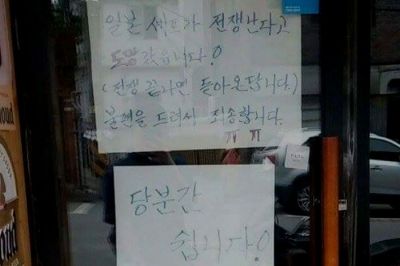 일본 셰프가 전쟁난다고
도망갔습니다!
(전쟁 끝나면 돌아온답니다.)
불편을 드려서 죄송합니다.
ㅠㅠ
당분간
쉽니다!